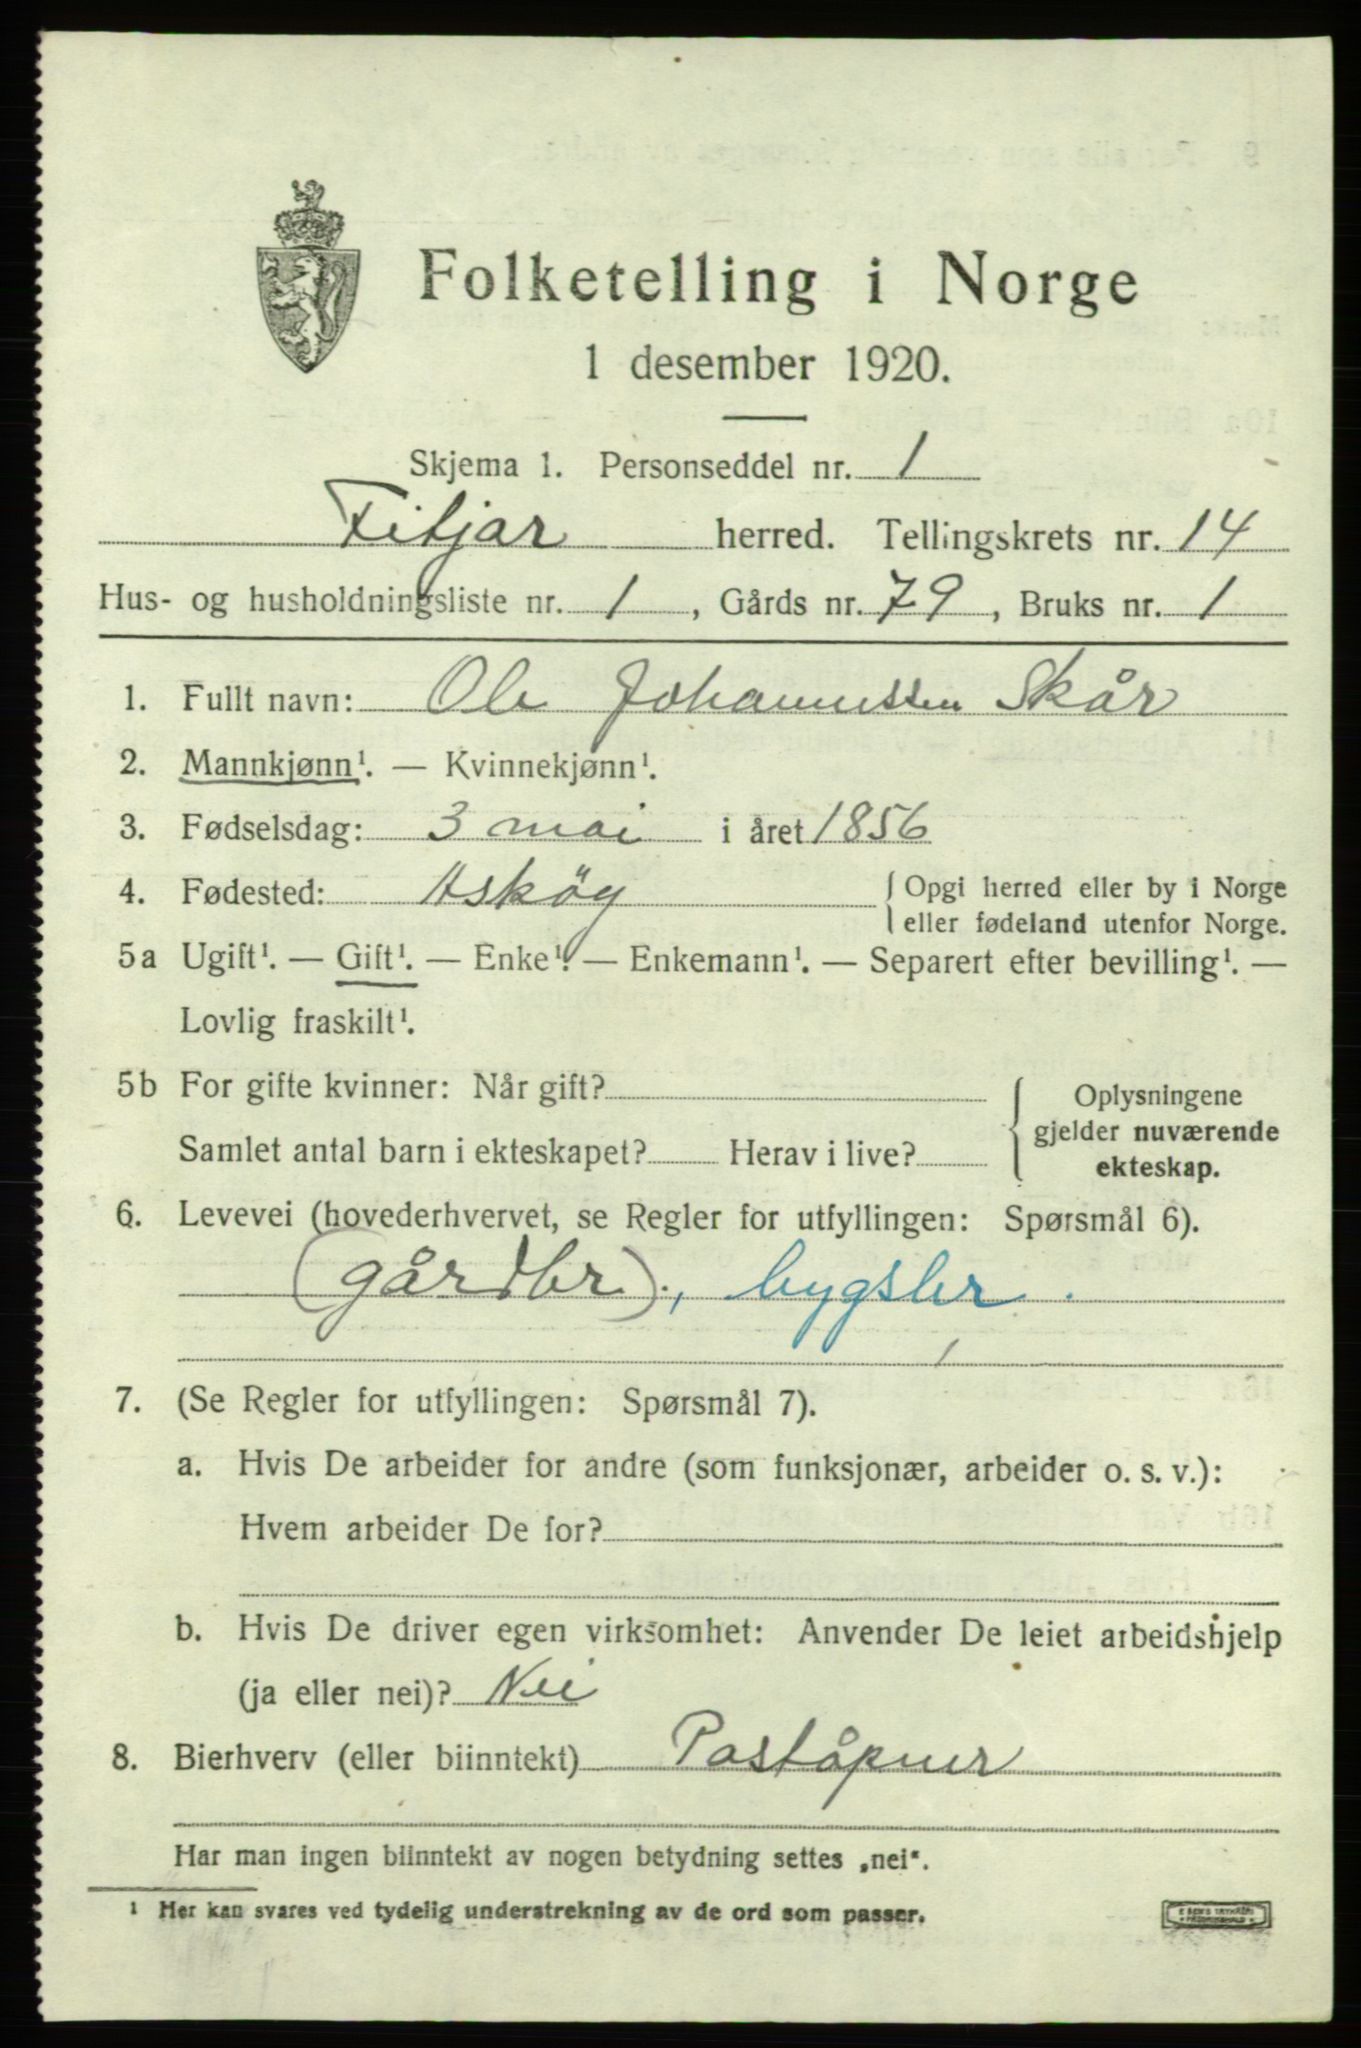 Folketelling i Norge
1 desember 1920.
Skjema 1. Personseddel nr. 1
Fitjar herred. Tellingskrets nr. 14
Hus- og husholdningsliste nr. 1, Gårds nr. 79, Bruks nr. 1
1. Fullt navn: Ole Johannessen Skår
2. Mannkjønn¹. — Kvinnekjønn¹.
3. Fødselsdag: 3 mai i året 1856
4. Fødested: Asköy { Opgi herred eller by i Norge
eller fødeland utenfor Norge.
5a Ugift¹. — Gift¹. — Enke¹. — Enkemann¹. — Separert efter bevilling¹. —
Lovlig fraskilt¹.
5b For gifte kvinner: Når gift?
Samlet antal barn i ekteskapet? Herav i live?
{ Oplysningene
gjelder nuværende
ekteskap.
6. Levevei (hovederhvervet, se Regler for utfyllingen: Spørsmål 6).
(gårdbr)., bygsler.
7. (Se Regler for utfyllingen: Spørsmål 7).
a. Hvis De arbeider for andre (som funksjonær, arbeider o. s. v.):
Hvem arbeider De for?
b. Hvis De driver egen virksomhet: Anvender De leiet arbeidshjelp
(ja eller nei)? Nei
8. Bierhverv (eller biinntekt) Poståpner
Har man ingen biinntekt av nogen betydning settes „nei".
¹ Her kan svares ved tydelig understrekning av de ord som passer.